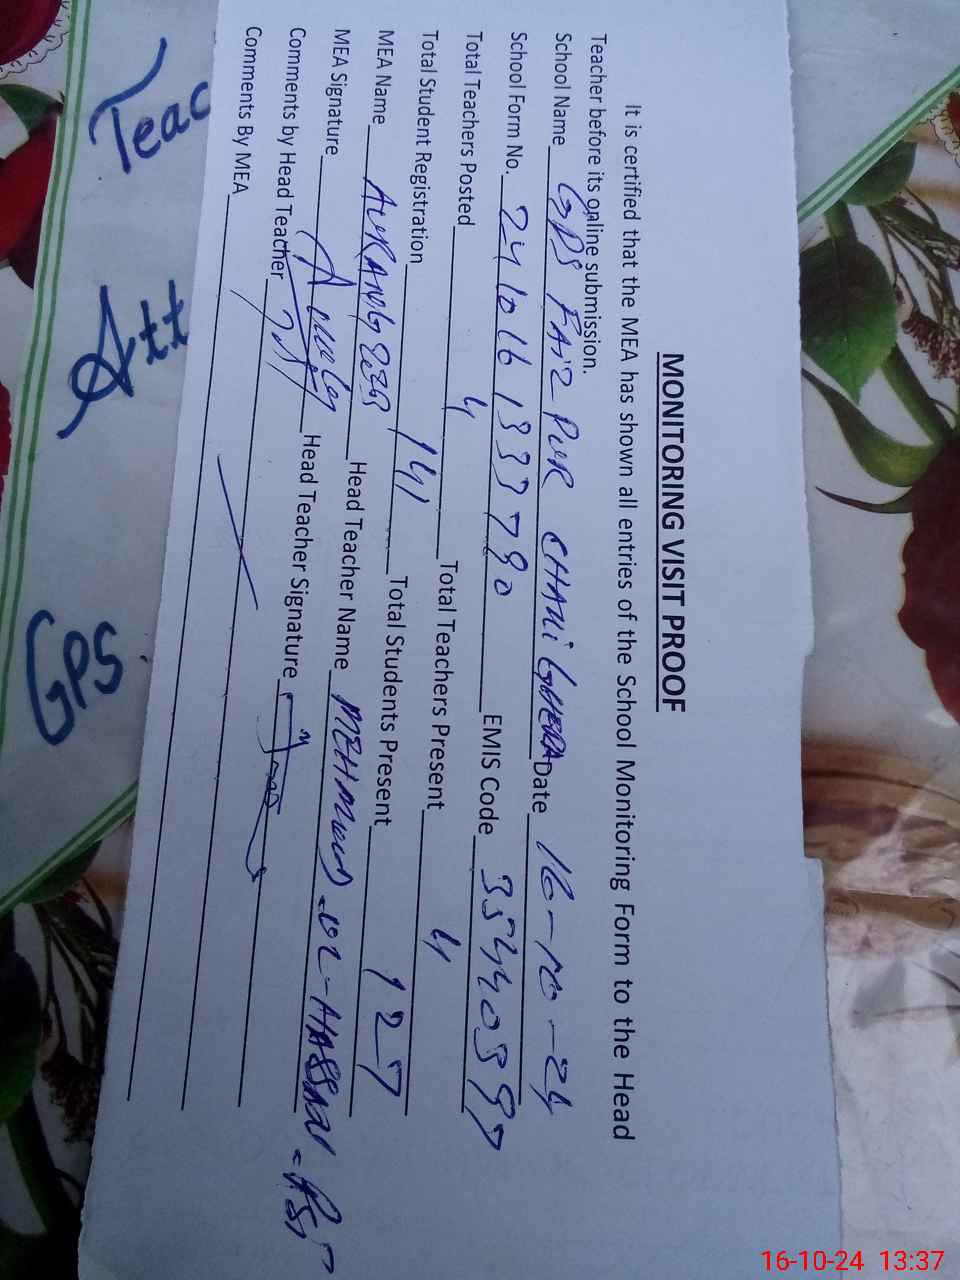 MONITORING VISIT PROOF
It is certified that the MEA has shown all entries of the School Monitoring Form to the Head
Teacher before its online submission.
School Name GPS FAiZ PUR CHAMi GUJERA Date 16-10-24
School Form No. 241016133780 EMIS Code 35440397
Total Teachers Posted 4 Total Teachers Present 4
Total Student Registration 141 Total Students Present 127
MEA Name AURANGZEB Head Teacher Name MEHMOOD-UL-HASSAN - PST
MEA Signature Head Teacher Signature
Comments by Head Teacher
Comments By MEA
Teac
Att
GPS
16-10-24 13:37